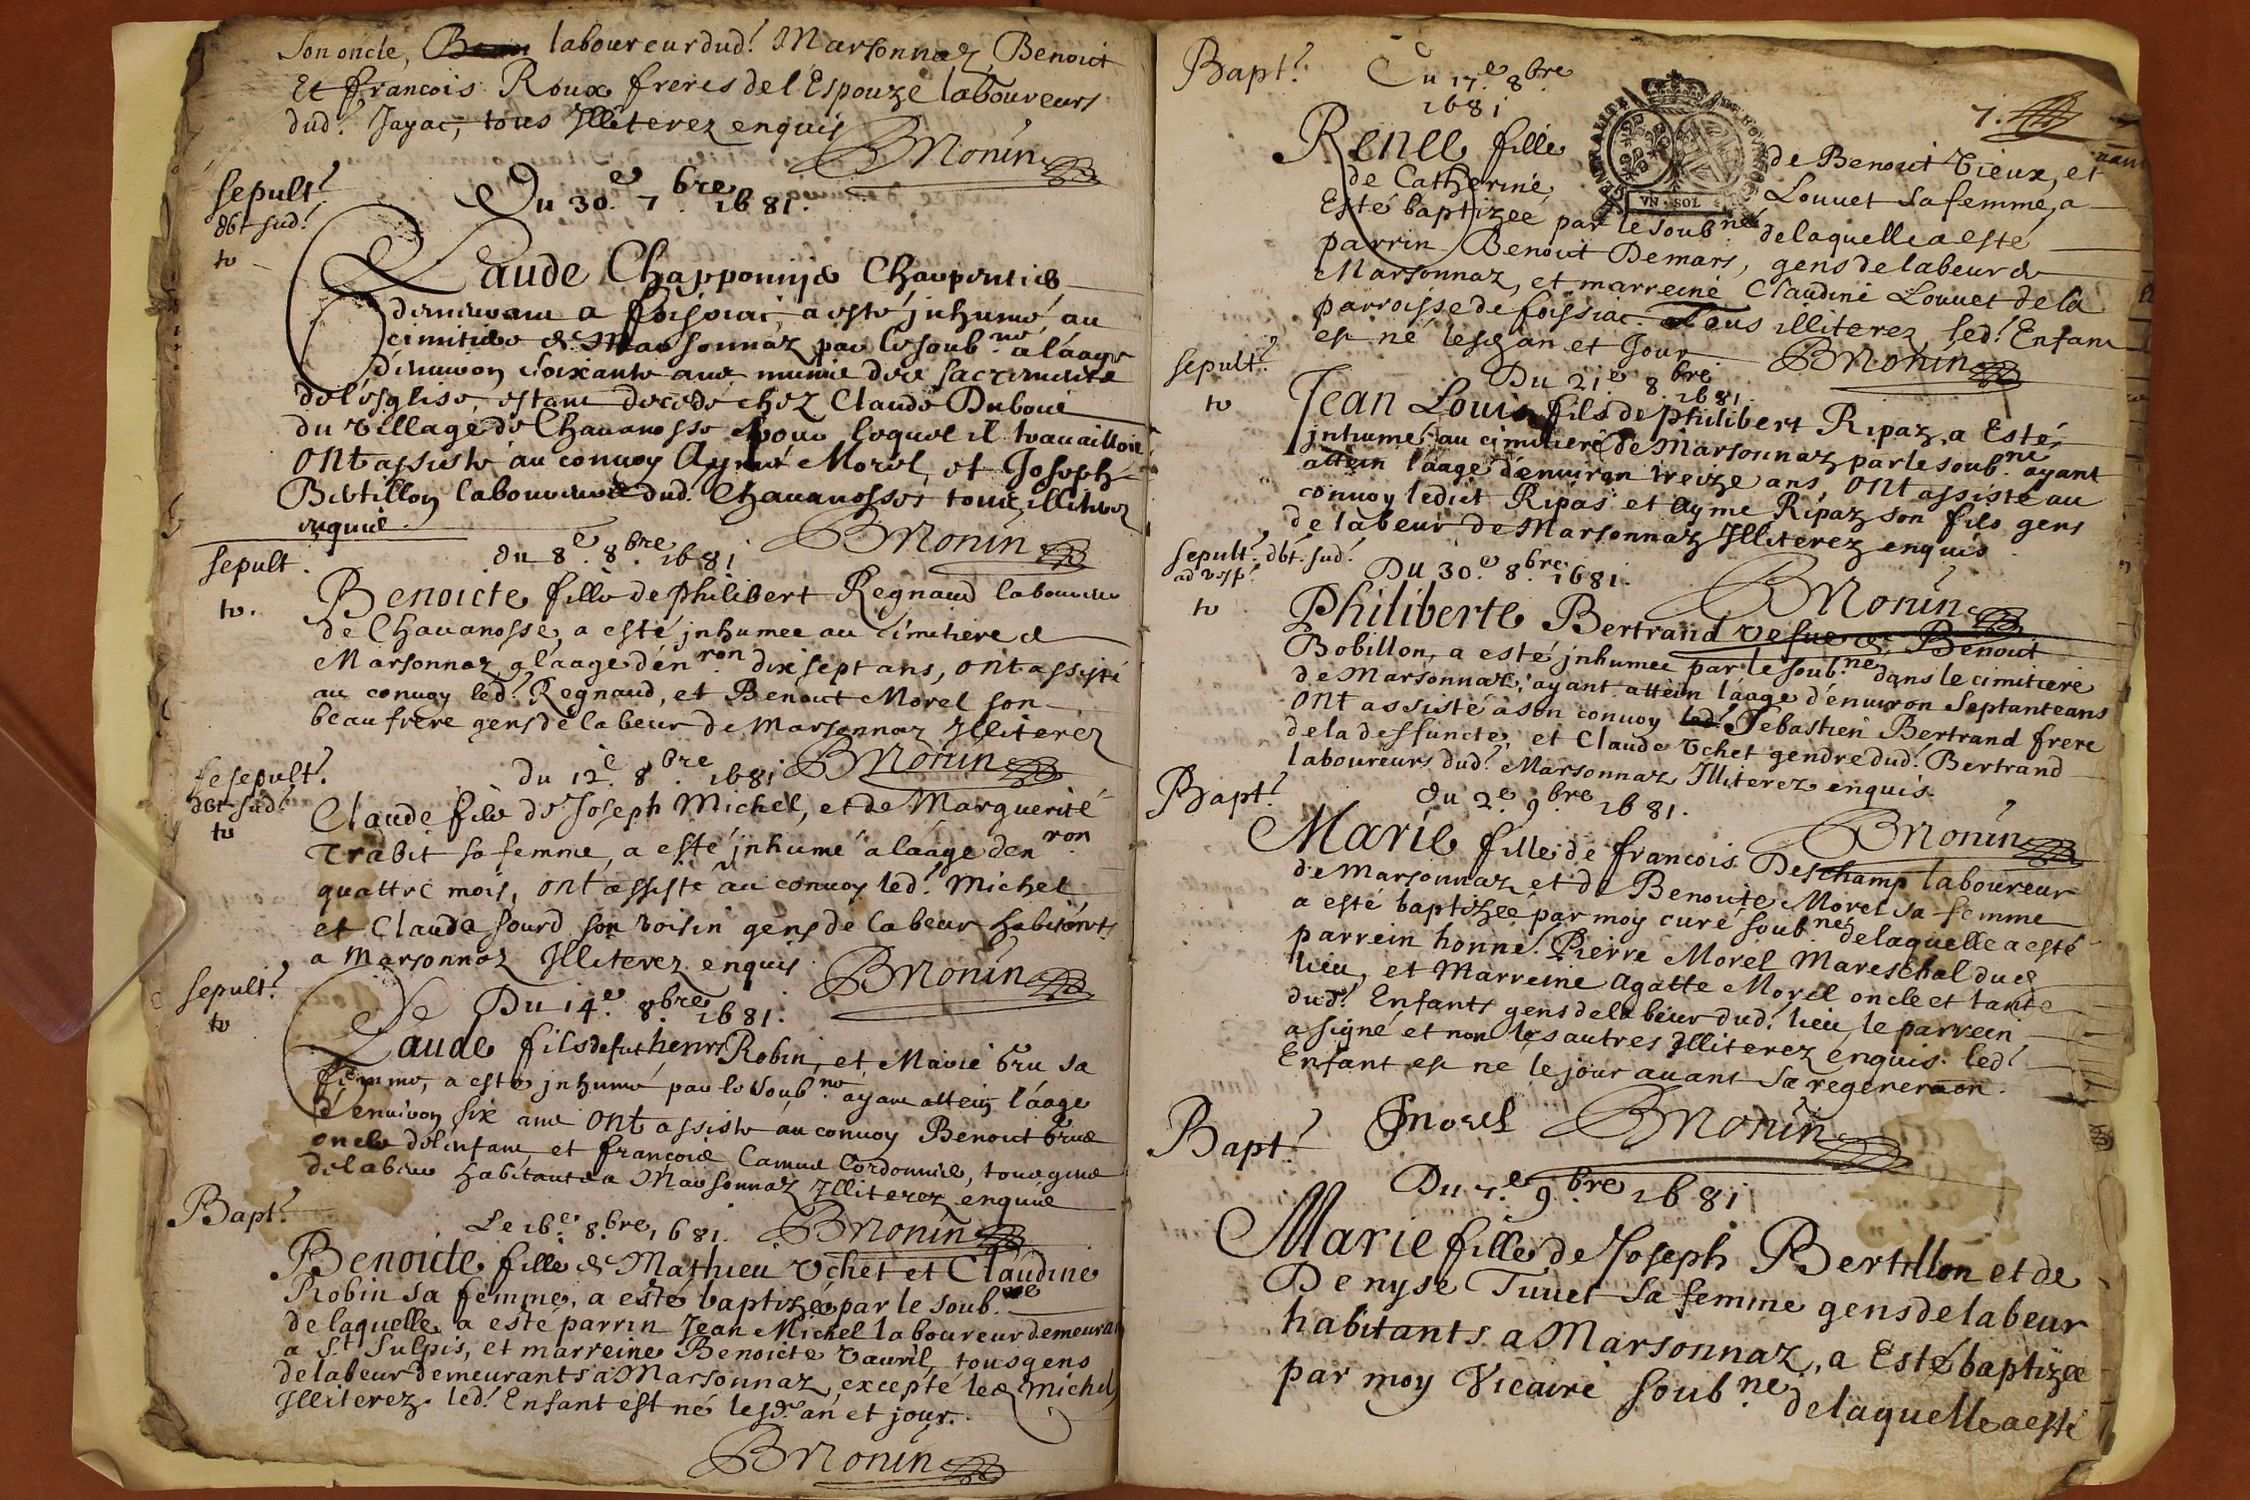 son oncle, laboureur dud.t Marsonnaz, Benoict
Et francois Roux freres de l'Espouze laboureurs
dud.t Jayac, tous Illiterez enquis
BMonin
sepult.e
dbt sud.t
to
Du 30.e 7.bre 1681.
Claude Chapponnije Charpentier
demeurant a foissiat, a esté inhumé au
cimitiere de Marsonnaz par le soub.né a l'aage
d'environ soixante ans, munie des sacrements
de l'esglise, estant decedé chez Claude Duboué
du village de Chavanosse pour lequel il travailloit
ont assisté au convoy Aymé Morel, et Joseph
Bertillon laboureurs dud. Chavanosse, tous illiterez
enquis.
BMonin
sepult.
to.
du 8.e 8.bre 1681
Benoicte fille de philibert Regnaud laboureur
de Chavanosse, a esté jnhumee au cimitiere de
Marsonnaz a l'aage d'en.ron dix sept ans, ont assisté
au convoy led.t Regnaud, et Benoict Morel son
beau frere gens de labeur de Marsonnaz Illiterez
BMonin
sepult.e
dbt sud.t
to
du 12.e 8.bre 1681
Claude fils de Joseph Michel, et de Marguerite
Trabit sa femme, a esté jnhumé a l'aage d'en.ron
quattre mois, ont assisté au convoy led.t Michel
et Claude sourd son voisin gens de labeur habitants
a Marsonnaz Illiterez enquis
BMonin
sepult.e
to
Du 14.e 8.bre 1681.
Claude fils de fut henry Robin, et Marie bru sa
femme, a esté jnhumé par le soub.né ayant attein l'aage
d'environ six ans ont assisté au convoy Benoict brus
oncle de l'enfant, et francois Camus Cordonnier, tous gens
de labeur habitants a Marsonnaz Illiterez enquis
BMonin
Bapt.e
Le 16.e 8.bre 1681.
Benoicte fille de Mathieu Vchet et Claudine
Robin sa femme, a esté baptizée par le soub.né
de laquelle a esté parrin Jean Michel laboureur demeurant
a S.t Sulpis, et marreine Benoicte Vauril, tous gens
de labeur demeurants a Marsonnaz, excepté led Michel
Illiterez. led.t Enfant est né lesd. an et jour.
BMonin
Bapt.e
Du 17.e 8.bre
1681
7.
GENERALITE DE BOURGOGNE
VN · SOL
Renee fille de Benoict Vieux, et
de Catherine Louuet sa femme, a
Esté baptizeé par le soub.né de laquelle a esté
parrin Benoict Demars, gens de labeur de
Marsonnaz, et marreine Claudine Louuet de la
parroisse de foissiac. Tous illiterez led.t Enfant
est né lesd. an et Jour
BMonin
sepult.e
to
Du 21.e 8.bre 1681.
Jean Louis fils de philibert Ripaz, a Esté
jnhumé au cimitiere de Marsonnaz par le soub.né ayant
attein l'aage d'enuiron treize ans ont assisté au
conuoy ledict Ripas et Ayme Ripaz son fils gens
de labeur de Marsonnaz Illiterez enquis
BMonin
sepult.e dbt. sud.t
to
Du 30.e 8.bre 1681.
Philiberte Bertrand vefue de Benoict
Bobillon, a esté jnhumee par le soub.né dans le cimitiere
de Marsonnaz, ayant attein l'aage d'enuiron Septante ans
ont assisté a son conuoy led.t Sebastien Bertrand frere
de la deffuncte, et Claude Vchet gendre dud.t Bertrand
laboureurs dud.t Marsonnaz Illiterez enquis.
BMonin
Bapt.e
du 2.e 9.bre 1681.
Marie fille de francois Deschamp laboureur
de Marsonnaz et de Benoicte Morel sa femme
a esté baptizeé par moy curé soub.né de laquelle a esté
parrein honne. Pierre Morel Mareschal dud
lieu, et Marreine Agatte Morel oncle et tante
dud.t Enfants gens de labeur dud.t lieu, le parrein
a signé et non les autres Illiterez enquis. led.t
Enfant est né le jour auant sa regeneraon.
PMorel BMonin
Bapt.e
Du 7.e 9.bre 1681
Marie fille de Joseph Bertillon et de
Denyse Tuuet sa femme gens de labeur
habitants a Marsonnaz, a Esté baptizée
par moy Vicaire soub.né de laquelle a esté